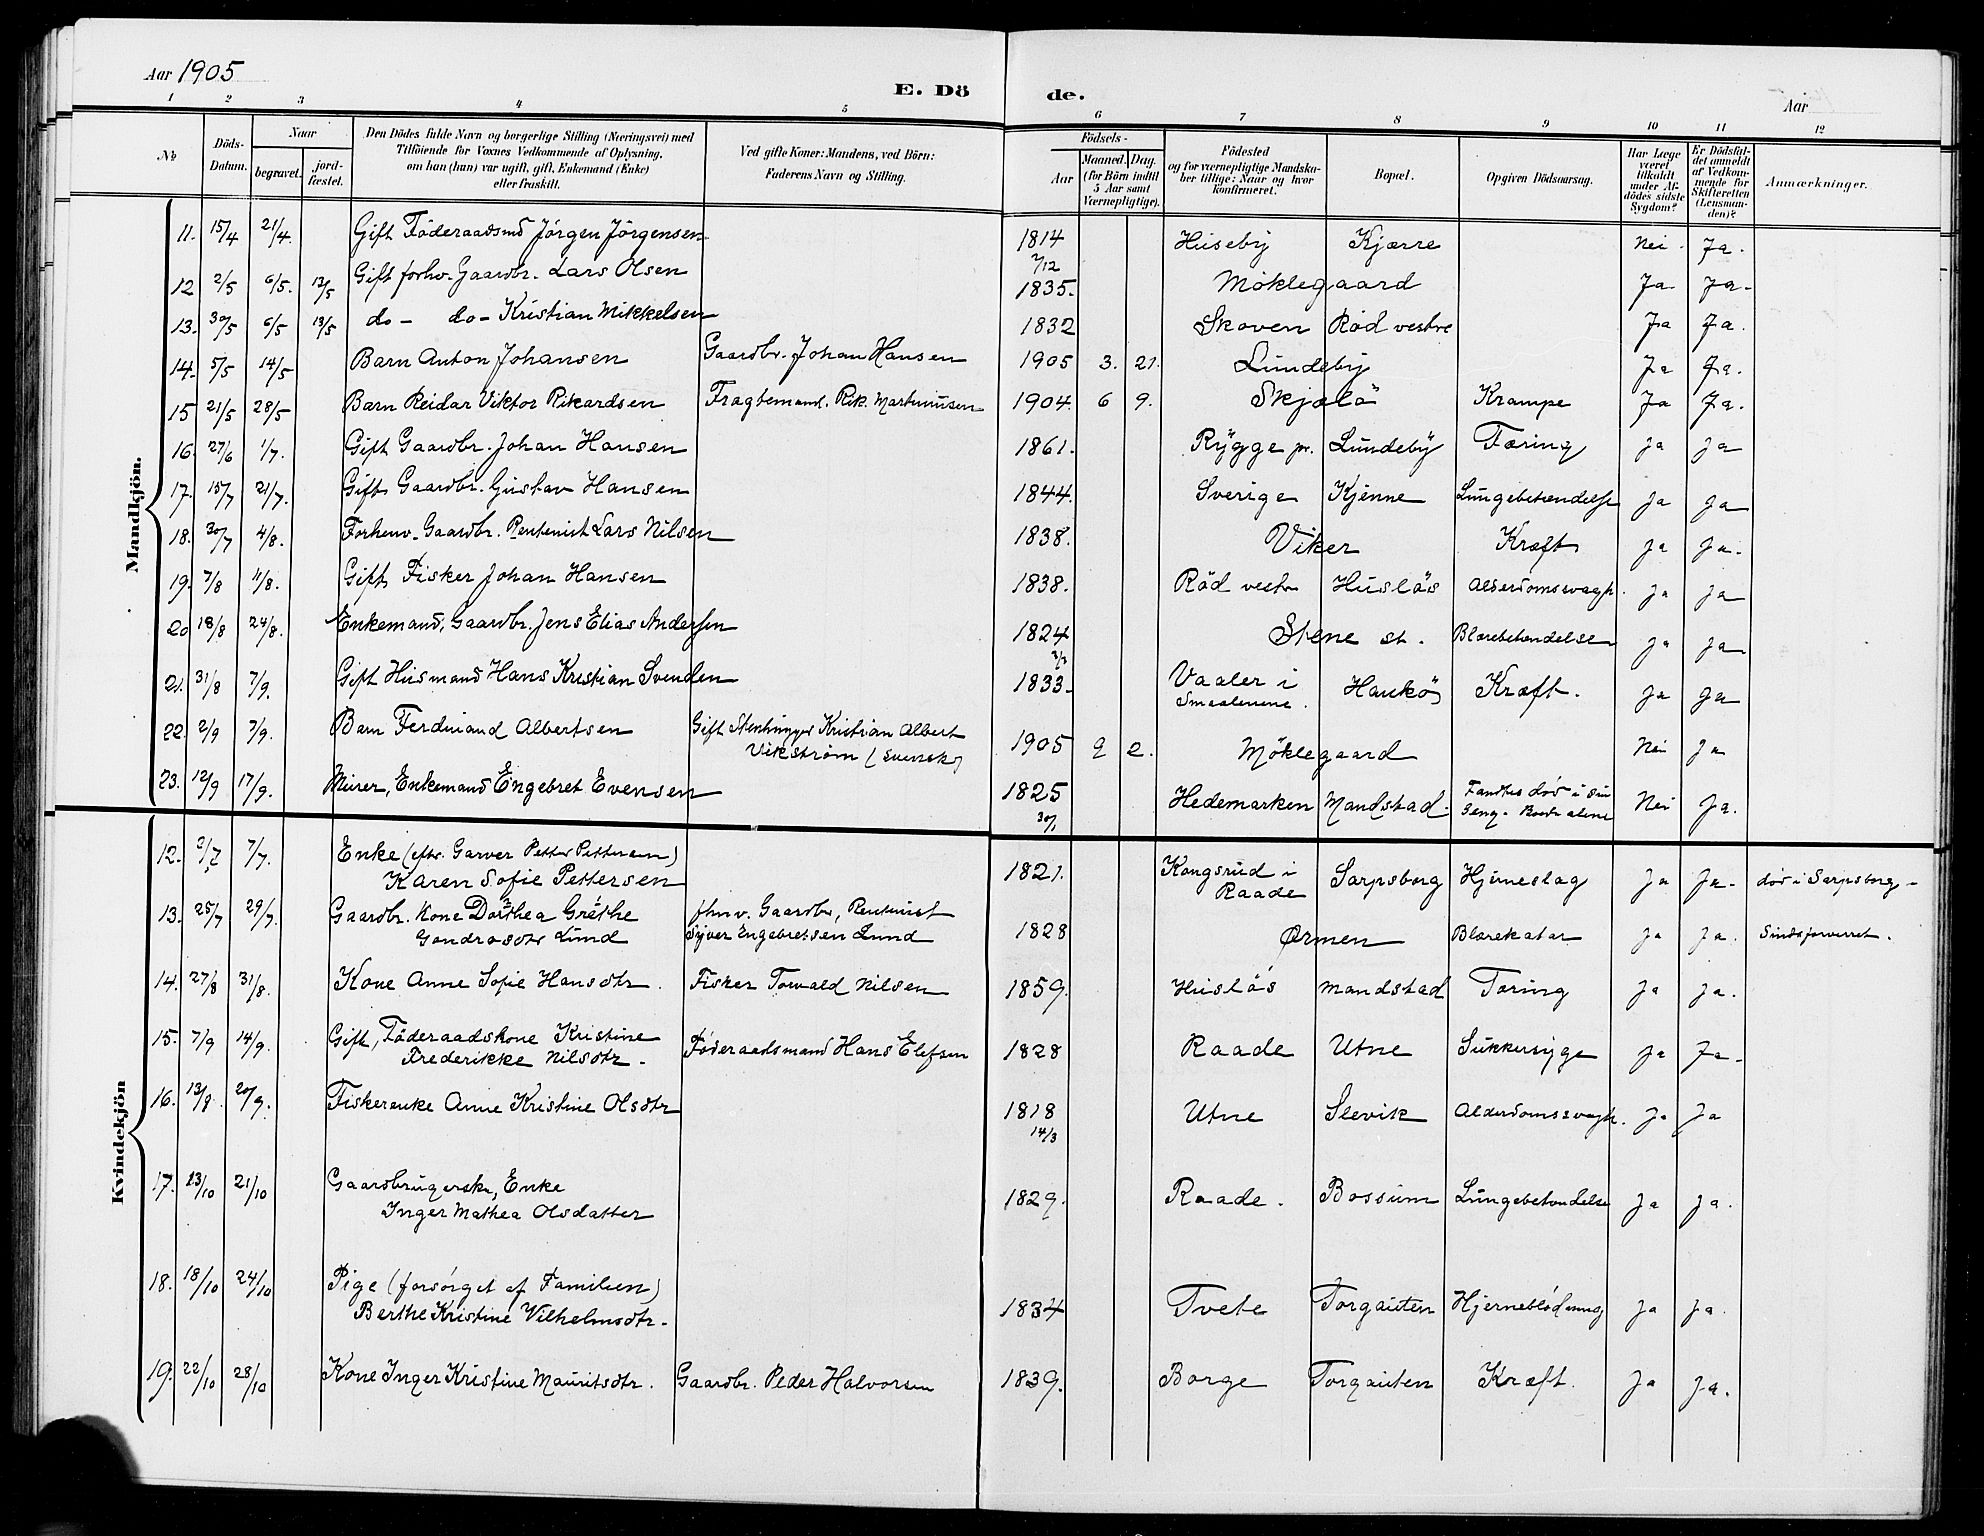 Aar 1905
E. Dö de.
Aar
1 2 3 4 5 6 7 8 9 10 11 12
№ Döds-Datum. Naar begravet. jordfæstet. Den Dödes fulde Navn og borgerlige Stilling (Næringsvei) med Tilföiende for Voxnes Vedkommende af Oplysning, om han (hun) var ugift, gift, Enkemand (Enke) eller fraskilt. Ved gifte Koner: Mandens, ved Börn: Faderens Navn og Stilling. Födsels- Aar Maaned. Dag. (for Börn indtil 5 Aar samt Værnepligtige). Födested og for værnepligtige Mandskaber tillige: Naar og hvor konfirmeret. Bopæl. Opgiven Dödsaarsag. Har Læge været tilkaldt under Afdödes sidste Sygdom? Er Dödsfaldet anmeldt af Vedkommende for Skifteretten (Lensmanden)? Anmærkninger.
Mandkjön.
11. 15/4 21/4. Gift Föderaadsmd Jörgen Jörgensen 1814 7/12 Huseby Kjærre Nei. Ja.
12 2/5 6/5. 13/5 Gift forhv. Gaardbr. Lars Olsen 1835. Möklegaard Ja Ja.
13. 30/5 6/5 13/5 do- do- Kristian Mikkelsen 1832 Skoven Röd vestre Ja Ja.
14. 5/5 14/5 Barn Anton Johansen Gaardbr. Johan Hansen 1905 3. 21. Lundeby Ja Ja.
15 21/5 28/5 Barn Reidar Viktor Rikardsen Fragtemand. Rik. Martinusen 1904. 6 9. Skjælö Krampe Ja Ja.
16. 27/6 1/7. Gift Gaardbr. Johan Hansen 1861. Rygge pr. Lundeby Tæring ja ja
17. 15/7 21/7. Gift Gaardbr. Gustav Hansen 1844. Sverige Kjenne Lungebetændelse ja ja
18. 30/7 4/8. Forhenv. Gaardbr. Rentenist Lars Nilsen 1838. Viker Kræft ja ja.
19. 7/8 11/8. Gift Fisker Johan Hansen 1838. Röd vestr Huslös Alderdomssvagh. ja ja
20 18/8 24/8. Enkemand, Gaardbr. Jens Elias Andersen 1824 3/3 Stene st. Blærebetændelse ja ja
21. 31/8 7/9. Gift Husmand Hans Kristian Svendsen 1833. Vaaler i Smaalenene. Hankö Kræft. ja ja
22. 2/9 7/9. Barn Ferdinand Albertsen Gift Stenhugger Kristian Albert Vikström (svensk) 1905 9 2. Möklegaard Nei Ja
23. 12/9 17/9. Murer, Enkemand Engebret Evensen 1825 30/1 Hedemarken Mandstad. Fandtes död i sin Seng. Boede alene Nei Ja.
Kvindekjön
12. 2/7 7/7. Enke (efter Garver Petter Pettersen) Karen Sofie Pettersen 1821. Kongsrud i Raade Sarpsborg Hjerneslag Ja Ja. död i Sarpsborg-
13. 25/7 29/7. Gaardbr. Kone Dorthea Grethe Gondrosdtr Lund fhnv. Gaardbr, Rentenist Syver Engebretsen Lund 1828 Ørmen Blærekatar ja ja. Sindsforvirret.
14. 27/8 31/8. Kone Anne Sofie Hansdtr. Fisker Torvald Nilsen 1859. Huslös Mandstad Tæring ja ja.
15. 7/9 14/9. Gift, Föderaadskone Kristine Frederikke Nilsdtr. Föderaadsmand Hans Elefsen 1828 Raade Utne Sukkersyge ja Ja-
16. 13/8. 20/9. Fiskerenke Anne Kristine Olsdtr 1818 14/3 Utne Slevik Alderdomssvagh. ja Ja
17. 13/10 21/10 Gaardbrugerske, Enke Inger Mathea Olsdatter 1829. Raade. Bossum Lungebetændelse ja ja.
18. 18/10 24/10 Pige (forsörget af Familien) Berthe Kristine Vilhelmsdtr. 1834 Tvete Torgauten Hjerneblödning ja ja.
19. 22/10 28/10 Kone Inger Kristine Mauritsdtr. Gaardbr. Peder Halvorsen 1839. Borge Torgauten Kræft. Ja ja.